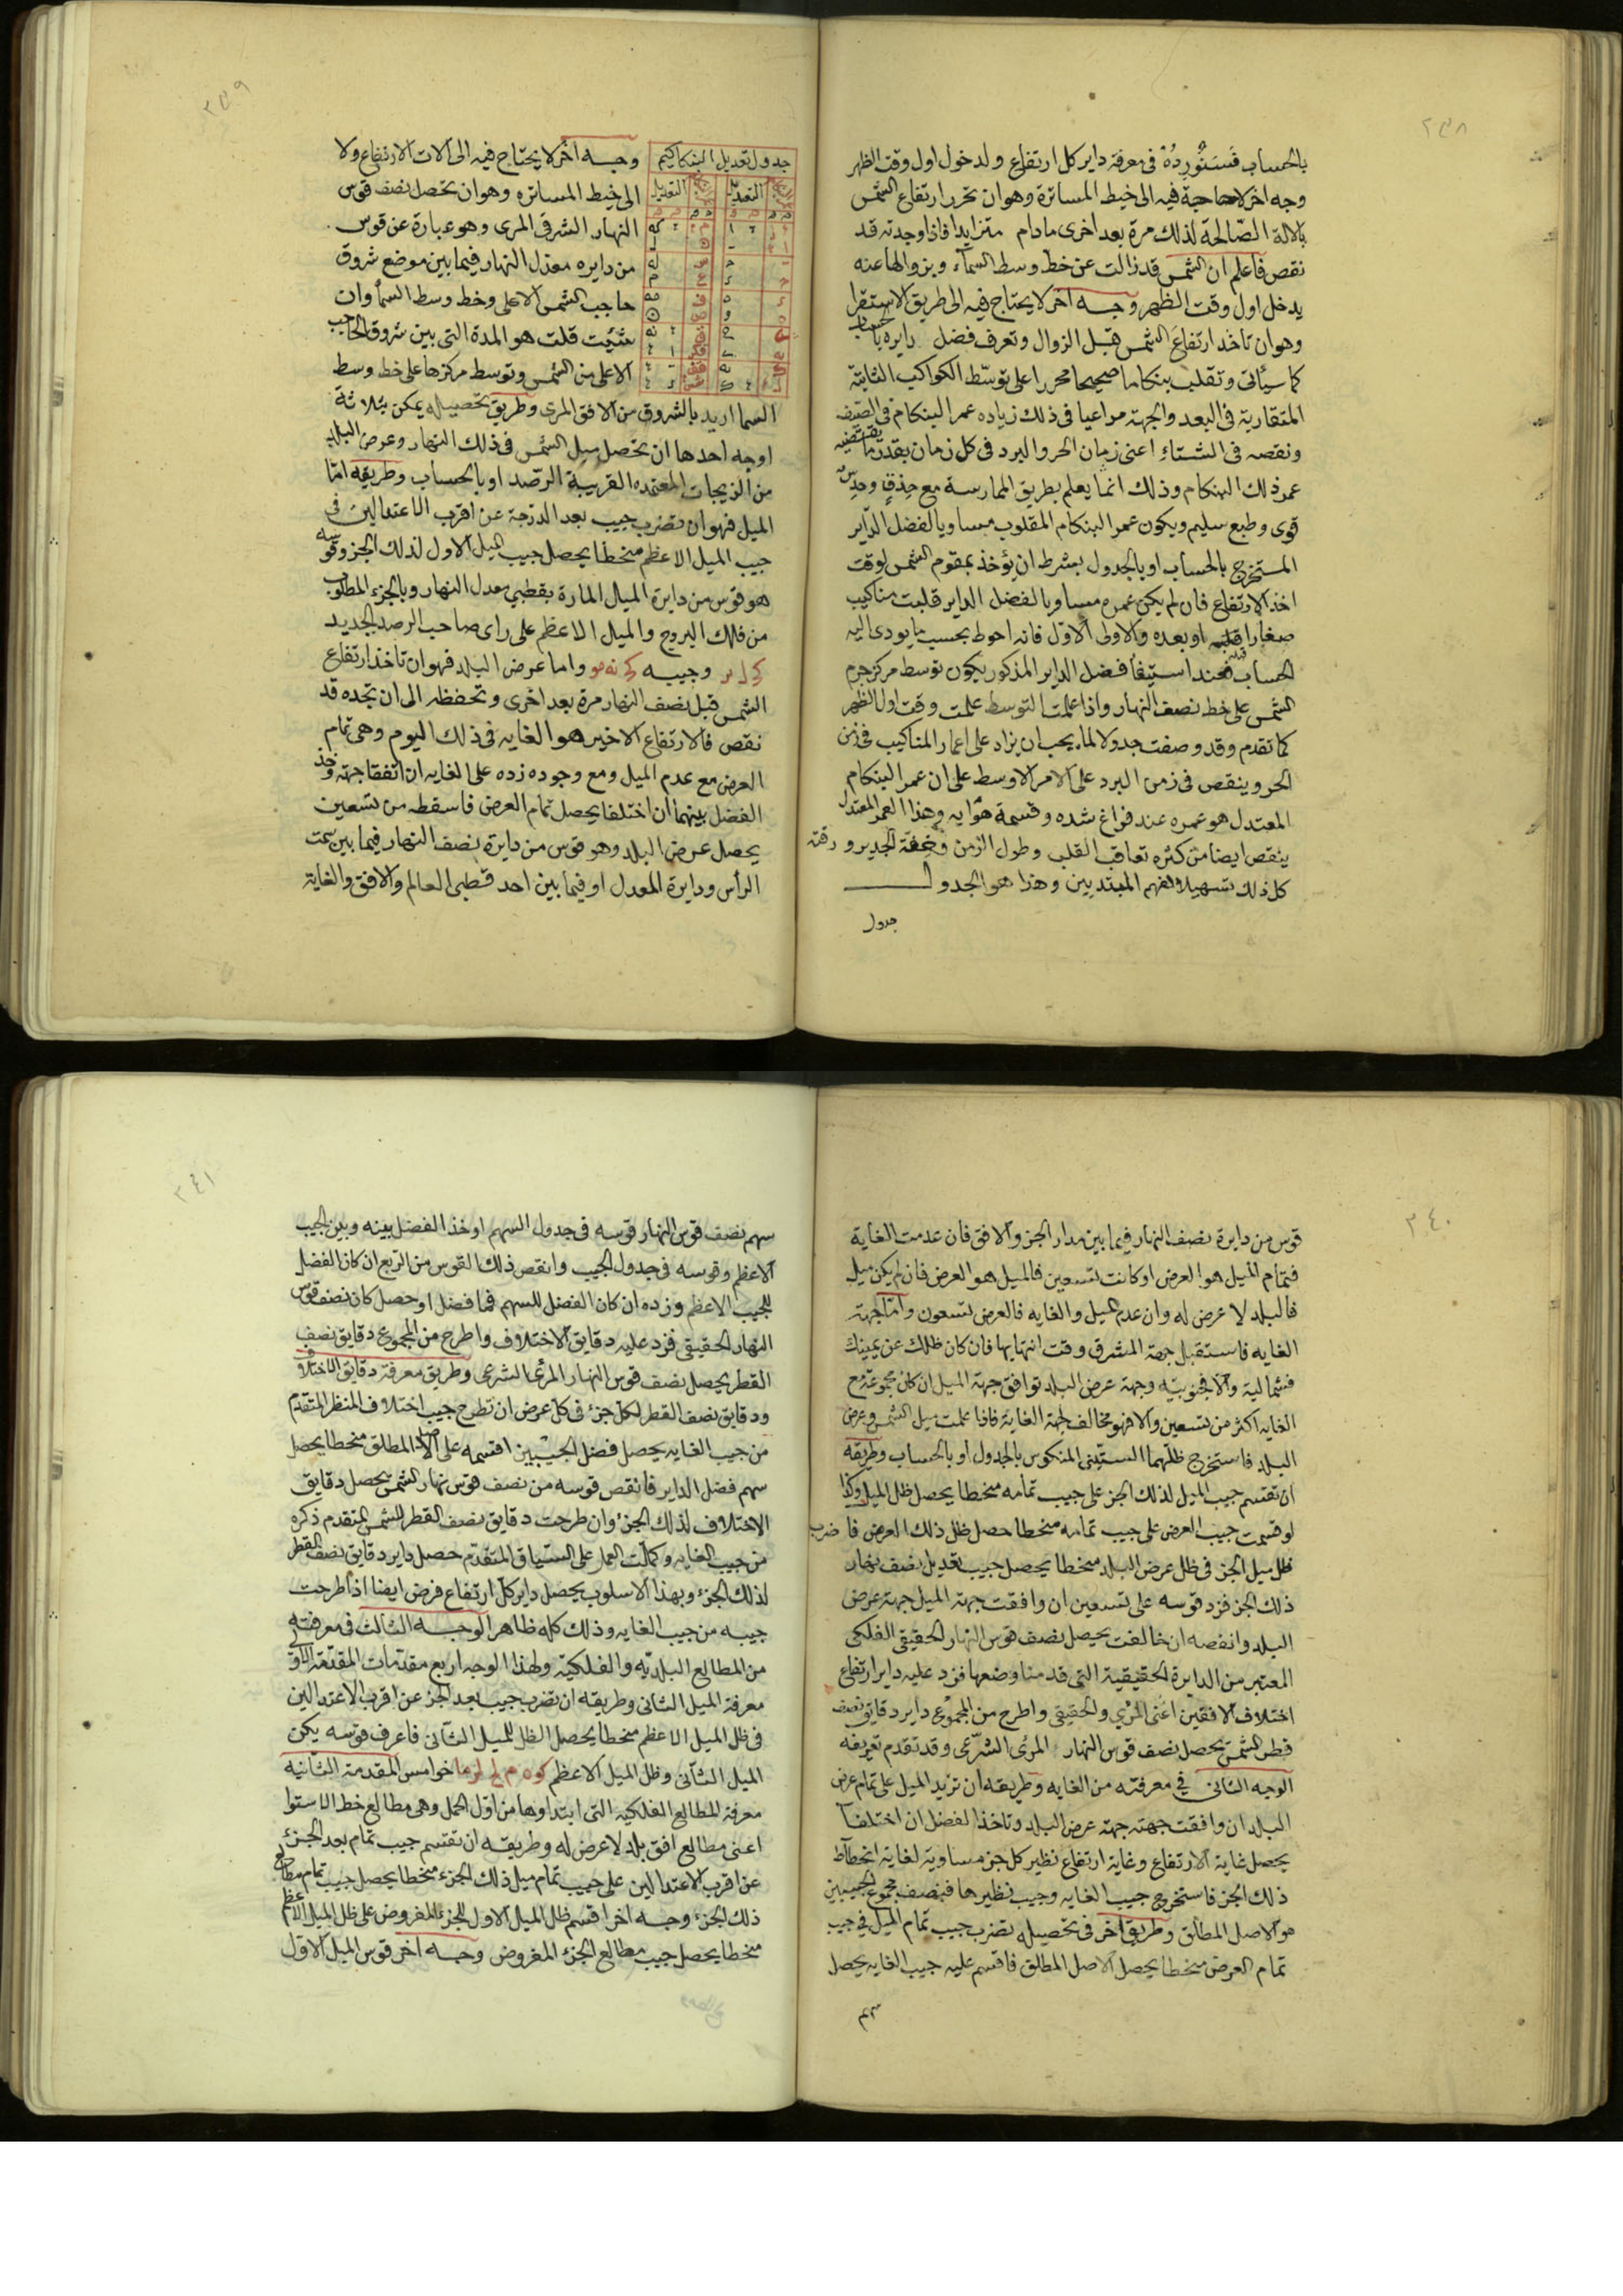 ٢٣٨
بالحساب فسنورده في معرفة داير كل ارتفاع ولدخول اول وقت الظهر
وجه اخر لا حاجة فيه الى خيط المساترة وهو ان تحرر ارتفاع الشمس
بالالة الصالحة لذلك مرة بعد اخرى مادام متزايدا فاذا وجدته قد
نقص فاعلم ان الشمس قد زالت عن خط وسط السماء وبزوالها عنه
يدخل اول وقت الظهر وجه اخر لا يحتاج فيه الى طريق الاستقرا
وهو ان تاخذ ارتفاع الشمس قبل الزوال وتعرف فضل دايره بالحساب
كما سيأتي وتقلب بنكاما صحيحا محررا على توسط الكواكب الثابتة
المتقاربة في البعد والجهة مراعيا في ذلك زياده عمر البنكام في الصيف
ونقصه في الشتاء اعني زمان الحر والبرد في كل زمان بقدر ما يقتضيه
عمر ذلك البنكام وذلك انما يعلم بطريق الممارسة مع حذق وحدس
قوى وطبع سليم ويكون عمر البنكام المقلوب مساويا لفضل الداير
المستخرج بالحساب او بالجدول بشرط ان يؤخذ بمقوم الشمس لوقت
اخذ الارتفاع فان لم يكن عمره مساويا لفضل الداير قلبت مناكيب
صغارا قبله او بعده والاولى الاول فانه احوط بحسب ما يودى اليه
الحساب فعند استيفا فضل الداير المذكور يكون توسط مركز جرم
الشمس على خط نصف النهار واذا علمت التوسط علمت وقت اول الظهر
كما تقدم وقد وصفت جدولا لما يجب ان يزاد على اعمار المناكيب في زمن
الحر وينقص في زمن البرد على الامر الاوسط على ان عمر البنكام
المعتدل هو عمره عند فراغ شده وقسمة هوايه وهذا العمر المعتدل
ينقص ايضا من كثره تعاقب القلب وطول الزمن وخفة الجدير ورقته
كل ذلك تسهيلا لفهم المبتديين وهذا هو الجدول
جدول
٢٣٩
جدول تعديل البنكاكيم
التعديل التعديل
وجه اخر لا يحتاج فيه الى الات الارتفاع ولا
الى خيط المساتره وهو ان تحصل نصف قوس
النهار الشرقي المرى وهو عبارة عن قوس
من دايره معدل النهار فيما بين موضع شروق
حاجب الشمس الاعلى وخط وسط السما وان
شئت قلت هو المدة التي بين شروق الحاجب
الاعلى من الشمس وتوسط مركزها على خط وسط
السما اريد بالشروق من الافق المرى وطريق تحصيله يمكن بثلاثة
اوجه احدها ان تحصل ميل الشمس في ذلك النهار وعرض البلد
من الزيجات المعتمده القريبة الرصد او بالحساب وطريقه اما
الميل فهو ان تضرب جيب بعد الدرجة عن اقرب الاعتدالين في
جيب الميل الاعظم منحطا يحصل جيب الميل الاول لذلك الجز وقوسه
هو قوس من دايرة الميال المارة بقطبي معدل النهار وبالجزء المطلوب
من فلك البروج والميل الاعظم على راى صاحب الرصد الجديد
وجيبه واما عرض البلد فهو ان تاخذ ارتفاع
الشمس قبل نصف النهار مرة بعد اخرى وتحفظه الى ان تجده قد
نقص فالارتفاع الاخير هو الغايه في ذلك اليوم وهي تمام
العرض مع عدم الميل ومع وجوده زده على الغايه ان اتفقا جهة وخذ
الفضل بينهما ان اختلفا يحصل تمام العرض فاسقطه من تسعين
يحصل عرض البلد وهو قوس من دايرة نصف النهار فيما بين سمت
الرأس ودايرة المعدل او فيما بين احد قطبي العالم والافق والغاية
٢٤٠
قوس من دايرة نصف النهار فيما بين مدار الجز والافق فان عدمت الغاية
فتمام الميل هو العرض او كانت تسعين فالميل هو العرض فان لم يكن ميل
فالبلد لا عرض له وان عدم الميل والغايه فالعرض تسعون واما جهة
الغايه فاستقبل جهة المشرق وقت انتهايها فان كان ظلك عن يمينك
فشمالية والا فجنوبيه وجهة عرض البلد توافق جهة الميل ان كان مجموعه مع
الغايه اكثر من تسعين والا فهو مخالف لجهة الغاية فاذا علمت ميل الشمس وعرض
البلد فاستخرج ظلهما الستيني المنكوس بالجدول او بالحساب وطريقه
ان تقسم جيب الميل لذلك الجز على جيب تمامه منحطا يحصل ظل الميل وكذا
لو قسمت جيب العرض على جيب تمامه منحطا حصل ظل ذلك العرض فاضرب
ظل ميل الجز في ظل عرض البلد منحطا يحصل جيب تعديل نصف نهار
ذلك الجز فزد قوسه على تسعين ان وافقت جهة الميل جهة عرض
البلد وانقصه ان خالفت يحصل نصف قوس النهار الحقيقي الفلكي
المعتبر من الدايرة الحقيقية التي قدمنا وضعها فزد عليه داير ارتفاع
اختلاف الافقين اعني المرئي والحقيقي واطرح من المجموع داير دقايق نصف
قطر الشمس يحصل نصف قوس النهار المرئي الشرعي وقد تقدم تعريفه
الوجه الثاني في معرفته من الغايه وطريقه ان تزيد الميل على تمام عرض
البلد ان وافقت جهته جهة عرض البلد وتاخذ الفضل ان اختلفا
يحصل غاية الارتفاع وغاية ارتفاع نظير كل جز مساوية لغاية انحطاط
ذلك الجز فاستخرج جيب الغايه وجيب نظيرها فبنصف مجموع الجيبين
هو الاصل المطلق وطريق اخر في تحصيله تضرب جيب تمام الميل في جيب
تمام العرض منحطا يحصل الاصل المطلق فاقسم عليه جيب الغايه يحصل
سهم
٢٤١
سهم نصف قوس النهار قوسه في جدول السهم او خذ الفضل بينه وبين الجيب
الاعظم وقوسه في جدول الجيب وانقص ذلك القوس من الربع ان كان الفضل
للجيب الاعظم وزده ان كان الفضل للسهم فما فضل او حصل كان نصف قوس
النهار الحقيقي فزد عليه دقايق الاختلاف واطرح من المجموع دقايق نصف
القطر يحصل نصف قوس النهار المرئي الشرعي وطريق معرفة دقايق الاختلاف
ودقايق نصف القطر لكل جزء في كل عرض ان تطرح جيب اختلاف المنظر المتقدم
من جيب الغايه يحصل فضل الجيبين اقسمه على المطلق منحطا يحصل
سهم فضل الداير فانقص قوسه من نصف قوس نهار الشمس يحصل دقايق
الاختلاف لذلك الجزء وان طرحت دقايق نصف القطر للشمس المتقدم ذكره
من جيب الغايه وكملت العمل على السياق المتقدم حصل داير دقايق نصف القطر
لذلك الجزء وبهذا الاسلوب يحصل داير كل ارتفاع فرض ايضا اذا طرحت
جيبه من جيب الغايه وذلك كله ظاهر الوجه الثالث في معرفته
من المطالع البلديه والفلكية ولهذا الوجه اربع مقدمات المقدمة الاولى
معرفة الميل الثاني وطريقه ان تضرب جيب بعد الجز عن اقرب الاعتدالين
في ظل الميل الاعظم منحطا يحصل الظل للميل الثاني فاعرف قوسه يكن
الميل الثاني وظل الميل الاعظم خوامس المقدمة الثانيه
معرفة المطالع الفلكيه التي ابتداوها من اول الحمل وهي مطالع خط الاستوا
اعني مطالع افق بلد لا عرض له وطريقه ان تقسم جيب تمام بعد الجزء
عن اقرب الاعتدالين على جيب تمام ميل ذلك الجزء منحطا يحصل جيب تمام مطالع
ذلك الجزء وجه اخر اقسم ظل الميل الاول للجزء المفروض على ظل الميل الاعظم
منحطا يحصل جيب مطالع الجزء المفروض وجه اخر قوس الميل الاول